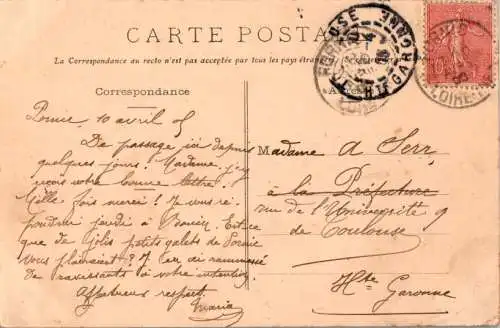 CARTE POSTALE
La Correspondance au recto n'est pas acceptée par tous les pays étrangers
Correspondance
10 avril 05
De passage ici depuis
quelques jours. Madame j'y
reçois votre bonne lettre!
Mille fois merci! Je vous
répondrai jeudi à
Est-ce
que de jolis petits galets de Pornic
vous plairaient? J'en ai ramassé
de ravissants à votre intention.
Affectueux respect.
Maria
HTE GARONNE
Madame A Serr
à la Préfecture
rue de l'Université 9
de Toulouse
Hte Garonne